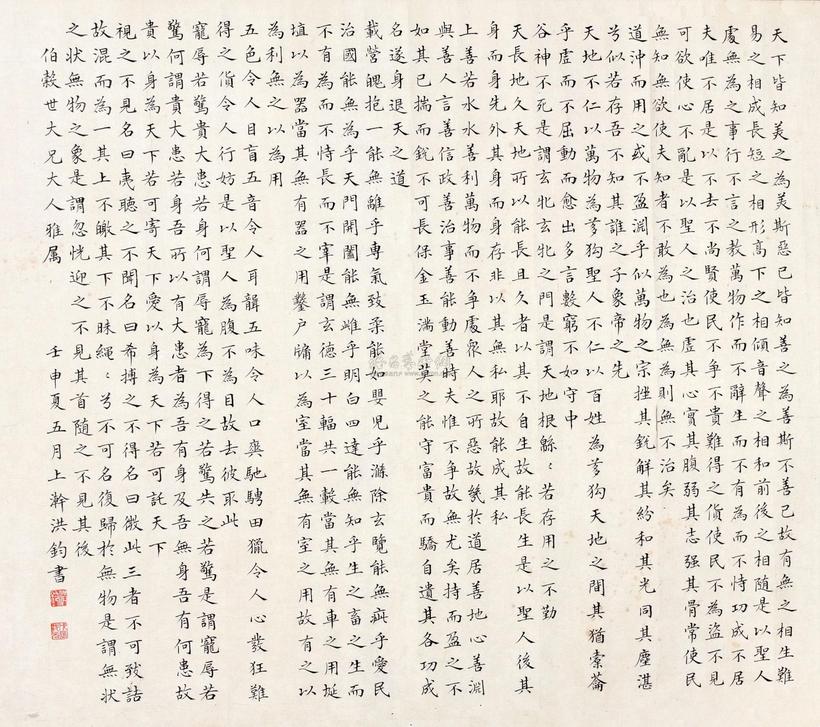 天下皆知美之為美斯惡已皆知善之為善斯不善已故有無之相生難
易之相成長短之相形高下之相傾音聲之相和前後之相隨是以聖人
處無為之事行不言之教萬物作而不辭生而不有為而不恃功成不居
夫唯不居是以不去不尚賢使民不爭不貴難得之貨使民不為盜不見
可欲使心不亂是以聖人之治也虛其心實其腹弱其志强其骨常使民
無知無欲使夫知者不敢為也為無為則無不治矣
道沖而用之或不盈淵乎似萬物之宗挫其銳解其紛和其光同其塵湛
兮似若存吾不知其誰之子象帝之先
天地不仁以萬物為芻狗聖人不仁以百姓為芻狗天地之間其猶橐籥
乎虛而不屈動而愈出多言數窮不如守中
谷神不死是謂玄牝玄牝之門是謂天地根緜〻若存用之不勤
天長地久天地所以能長且久者以其不自生故能長生是以聖人後其
身而身先外其身而身存非以其無私耶故能成其私
上善若水水善利萬物而不争處衆人之所惡故幾於道居善地心善淵
與善人言善信政善治事善能動善時夫惟不爭故無尤矣持而盈之不
如其已揣而銳不可長保金玉滿堂莫之能守富貴而驕自遺其各功成
名遂身退天之道
載營魄抱一能無離乎專氣致柔能如嬰兒乎滌除玄覽能無疵乎愛民
治國能無為乎天門開闔能無雌乎明白四達能無知乎生之畜之生而
不有為而不恃長而不宰是謂玄德三十輻共一轂當其無有車之用埏
埴以為器當其無有器之用鑿户牖以為室當其無有室之用故有之以
為利無之以為用
五色令人目盲五音令人耳聾五味令人口爽馳騁田獵令人心發狂難
得之貨令人行妨是以聖人為腹不為目故去彼取此
寵辱若驚貴大患若身何謂辱寵為下得之若驚失之若驚是謂寵辱若
驚何謂貴大患若身吾所以有大患者為吾有身及吾無身吾有何患故
貴以身為天下若可寄天下愛以身為天下若可託天下
視之不見名曰夷聽之不聞名曰希搏之不得名曰微此三者不可致詰
故混而為一其上不皦其下不昧繩〻兮不可名復歸於無物是謂無狀
之狀無物之象是謂忽恍迎之不見其首隨之不見其後
伯穀世大兄大人雅属 壬申夏五月上澣洪鈞書